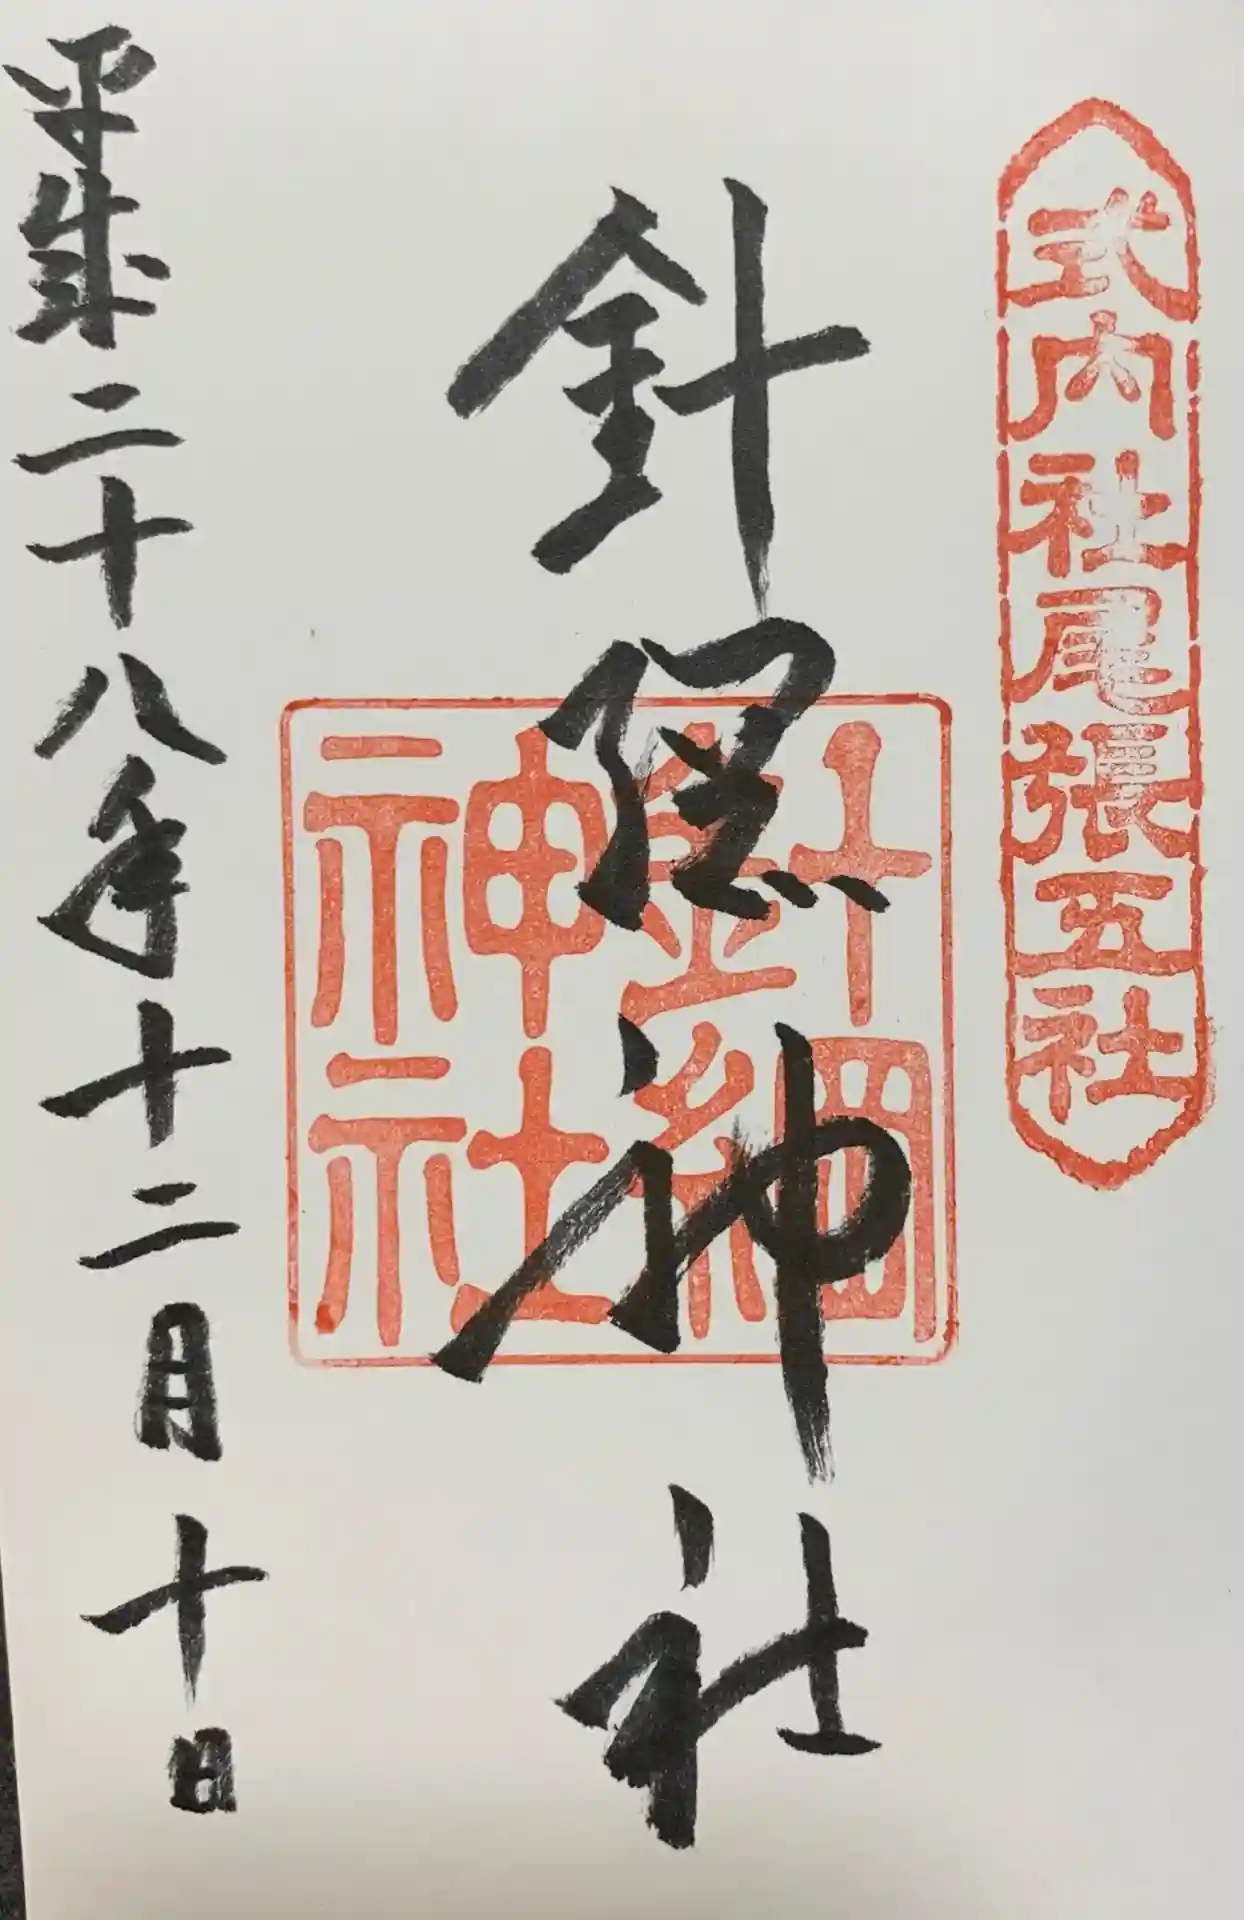 式内社尾張五社
針綱神社
針綱神社
平成二十八年十二月十日